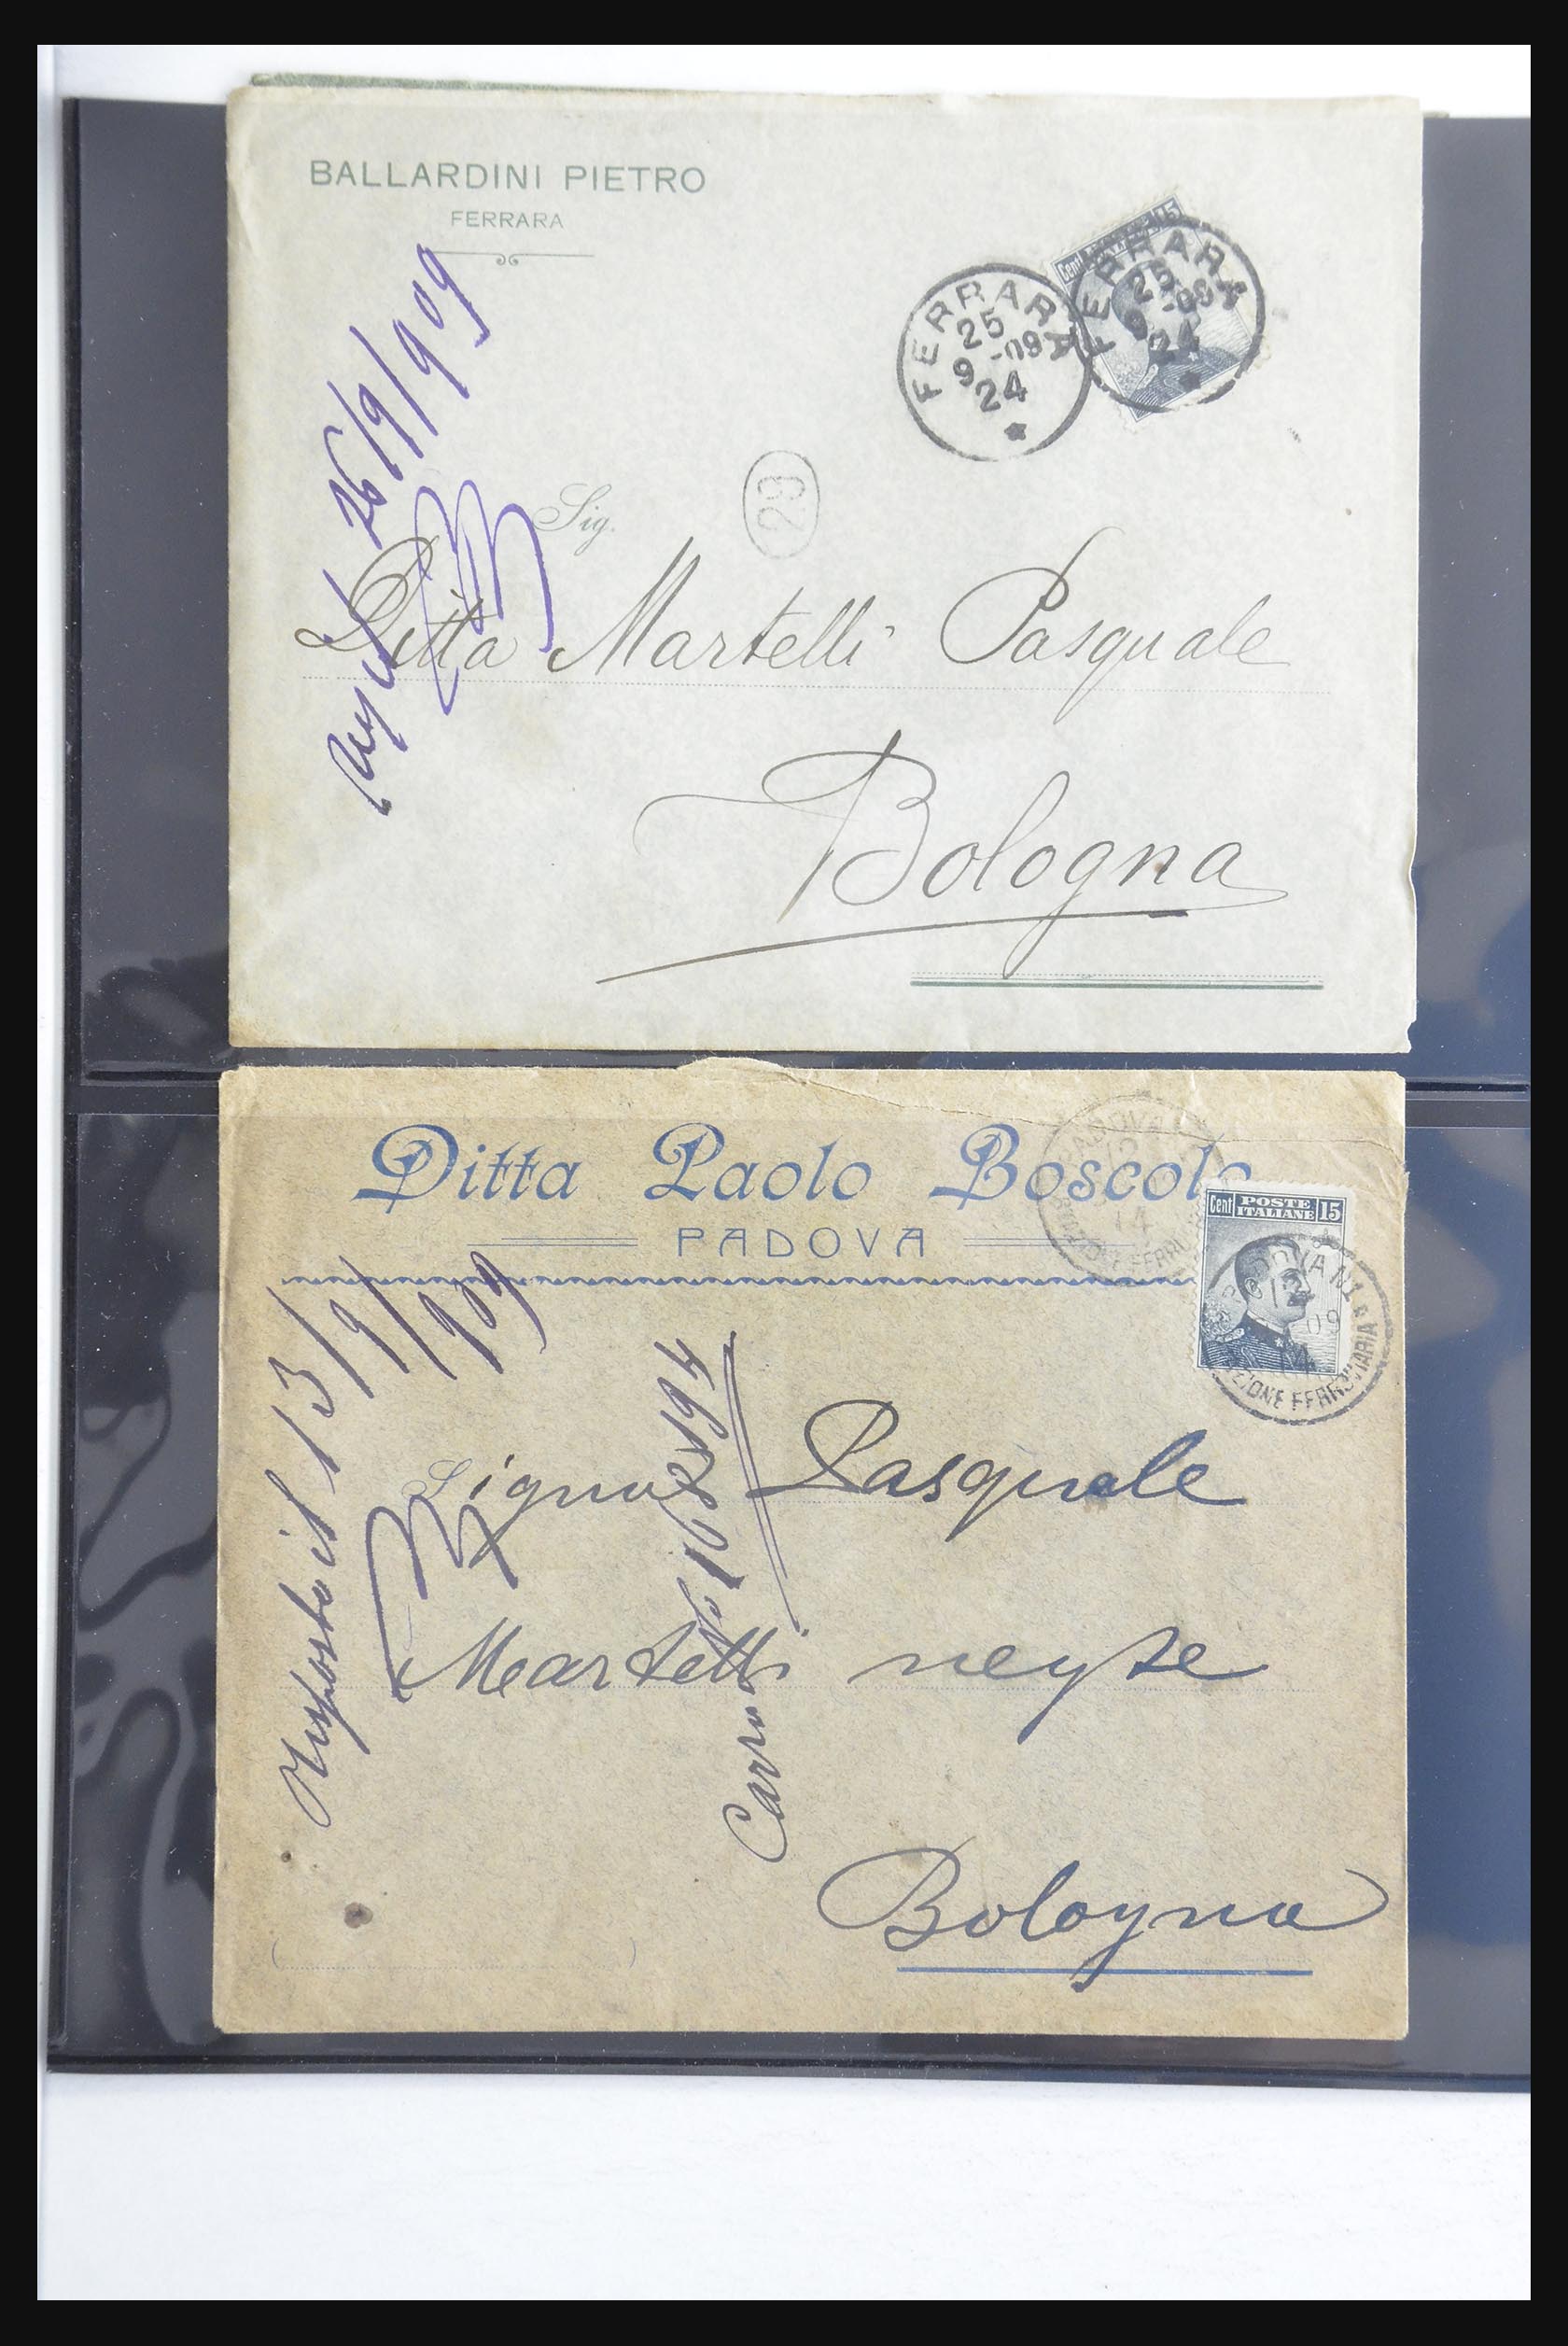 BALLARDINI PIETRO
FERRARA
Cent 15
FERRARA
25
9 -09
24
FERRARA
25
9 -09
24
26/9/909
23
Sig.
Ditta Martelli Pasquale
Bologna
Ditta Paolo Boscolo
PADOVA
PADOVA
12
14
Cent POSTE ITALIANE 15
PADOVA N1
09
14
ZIONE FERROVIARIA
Risposto il 13/9/909
Signor Pasquale
Carro No 168194
Martelli negte
Bologna